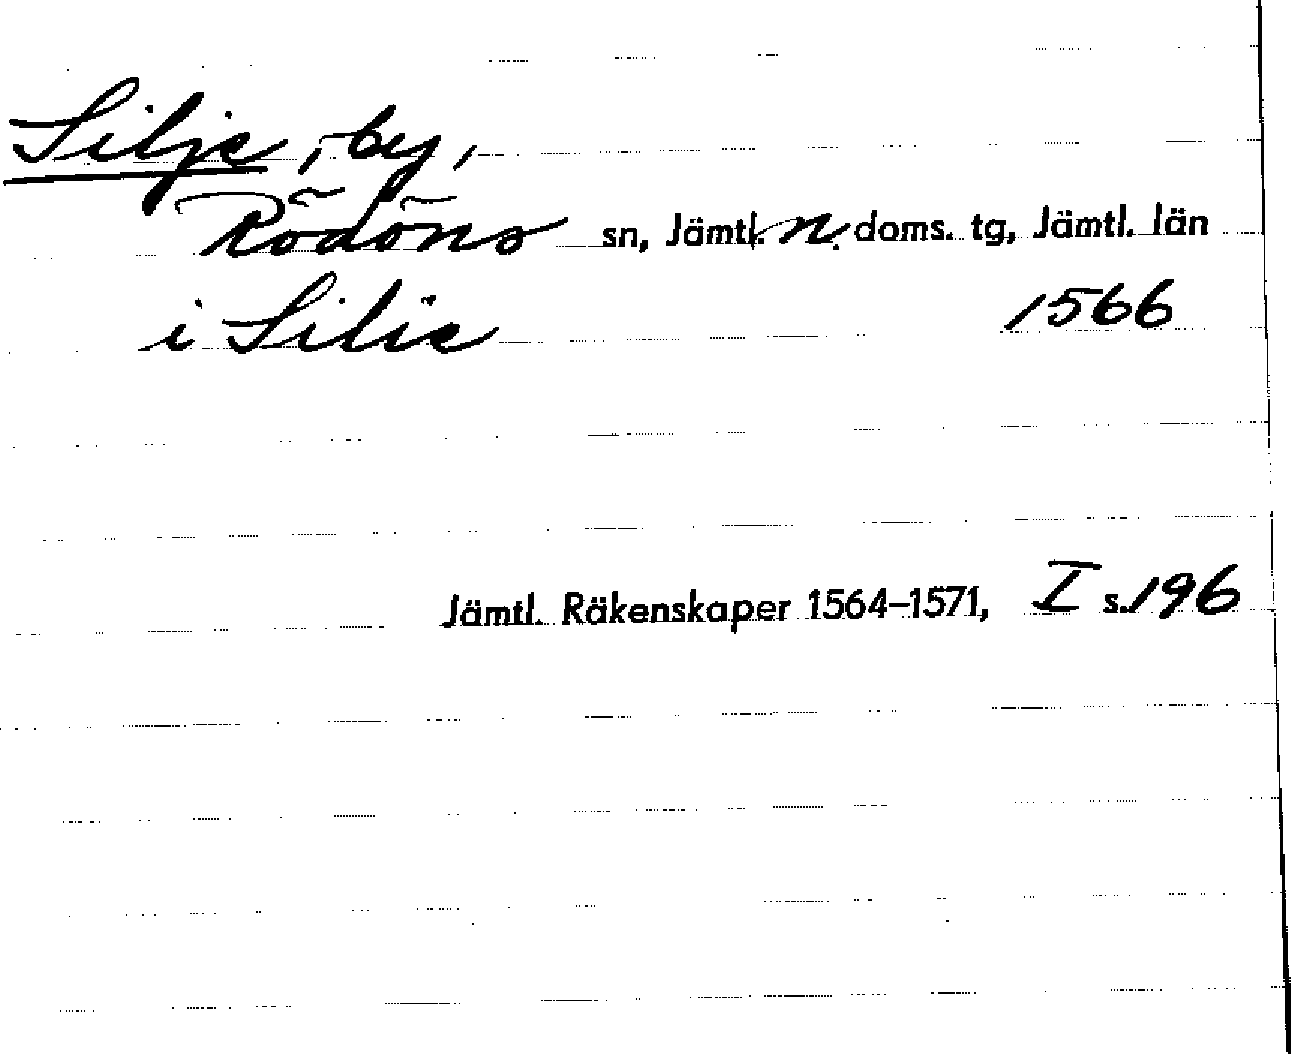 Silje, by,
Rödöns sn, Jämtl. n. doms. tg, Jämtl. län
i Silie 1566
Jämtl. Räkenskaper 1564–1571, I s. 196